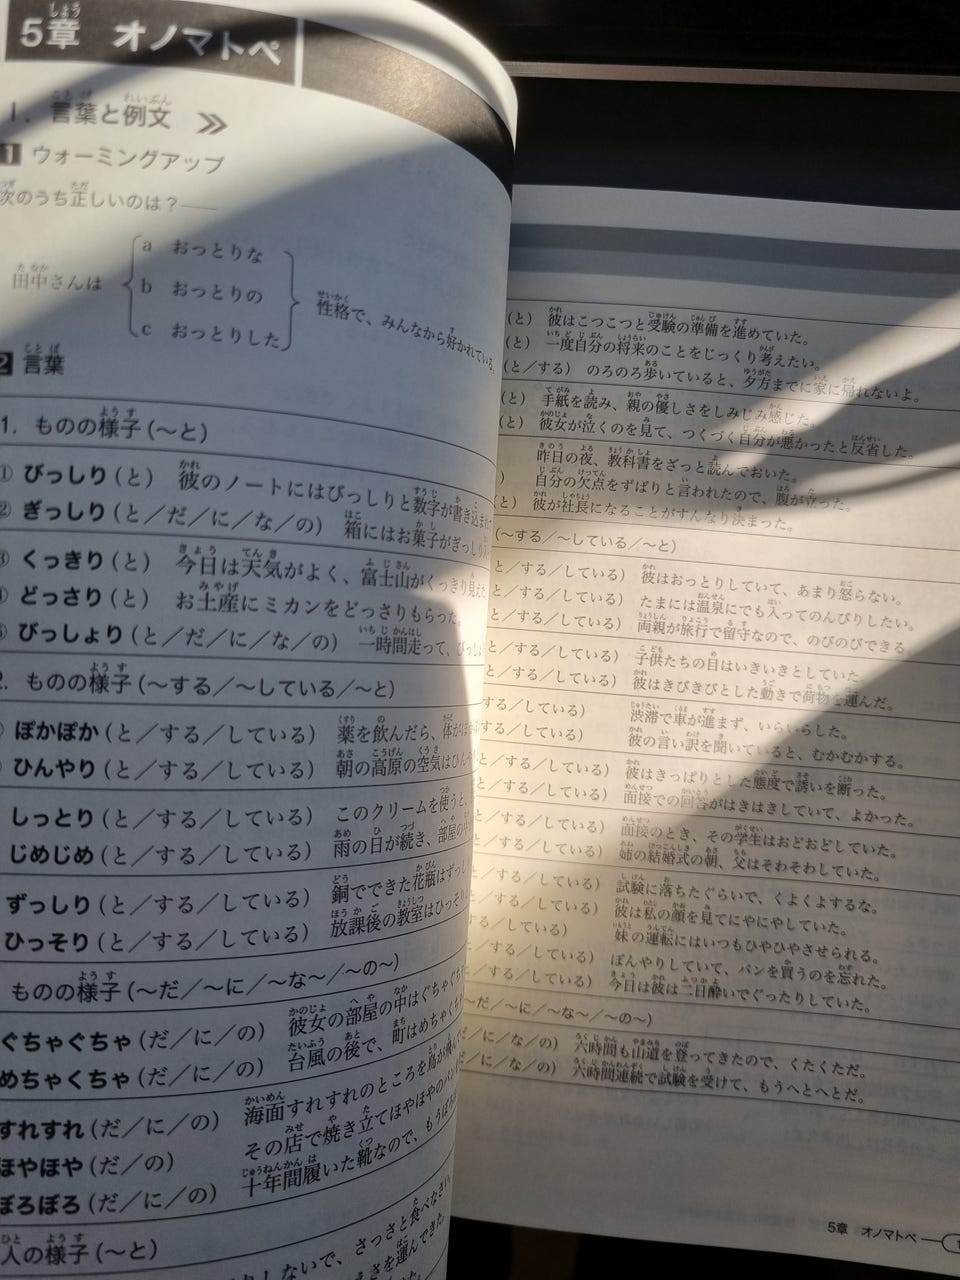 5章 オノマトペ
1. 言葉と例文
1 ウォーミングアップ
次のうち正しいのは？
田中さんは
a おっとりな
b おっとりの
c おっとりした
性格で、みんなから好かれている。
2 言葉
1. ものの様子（～と）
① びっしり（と） 彼のノートにはびっしりと数字が書き込まれて
② ぎっしり（と／だ／に／な／の） 箱にはお菓子がぎっしり
③ くっきり（と） 今日は天気がよく、富士山がくっきり見えた
④ どっさり（と） お土産にミカンをどっさりもらった。
⑤ びっしょり（と／だ／に／な／の） 一時間走って、びっしょ
2. ものの様子（～する／～している／～と）
ぽかぽか（と／する／している） 薬を飲んだら、体が
ひんやり（と／する／している） 朝の高原の空気はひんや
しっとり（と／する／している） このクリームを使うと、
じめじめ（と／する／している） 雨の日が続き、部屋の
ずっしり（と／する／している） 銅でできた花瓶はずっし
ひっそり（と／する／している） 放課後の教室はひっそ
ものの様子（～だ／～に／～な～／～の～）
ぐちゃぐちゃ（だ／に／の） 彼女の部屋の中はぐちゃぐち
めちゃくちゃ（だ／に／の） 台風の後で、町はめちゃくち
すれすれ（だ／に／の） 海面すれすれのところを鳥が飛んで
ほやほや（だ／の） その店で焼き立てほやほやのパン
ぼろぼろ（だ／に／の） 十年間履いた靴なので、もうぼろ
人の様子（～と）
りしないで、さっさと食べなさい
えさを運んできた。
（と） 彼はこつこつと受験の準備を進めていた。
（と） 一度自分の将来のことをじっくり考えたい。
（と／する） のろのろ歩いていると、夕方までに家に帰れないよ。
（と） 手紙を読み、親の優しさをしみじみ感じた。
（と） 彼女が泣くのを見て、つくづく自分が悪かったと反省した。
昨日の夜、教科書をざっと読んでおいた。
） 自分の欠点をずばりと言われたので、腹が立った。
と） 彼が社長になることがすんなり決まった。
（～する／～している／～と）
と／する／している） 彼はおっとりしていて、あまり怒らない。
と／する／している） たまには温泉にでも入ってのんびりしたい。
と／する／している） 両親が旅行で留守なので、のびのびできる。
と／する／している） 子供たちの目はいきいきとしていた
と／する／している） 彼はきびきびとした動きで荷物を運んだ。
する／している） 渋滞で車が進まず、いらいらした。
する／している） 彼の言い訳を聞いていると、むかむかする。
と／する／している） 彼はきっぱりとした態度で誘いを断った。
と／する／している） 面接での回答がはきはきしていて、よかった。
と／する／している） 面接のとき、その学生はおどおどしていた。
と／する／している） 姉の結婚式の朝、父はそわそわしていた。
と／する／している） 試験に落ちたぐらいで、くよくよするな。
と／する／している） 彼は私の顔を見てにやにやしていた。
する／している） 妹の運転にはいつもひやひやさせられる。
と／する／している） ぼんやりしていて、パンを買うのを忘れた。
と／する／している） 今日は彼は二日酔いでぐったりしていた。
～だ／～に／～な～／～の～）
だ／に／な／の） 六時間も山道を登ってきたので、くたくただ。
だ／に／な／の） 六時間連続で試験を受けて、もうへとへとだ。
5章 オノマトペ